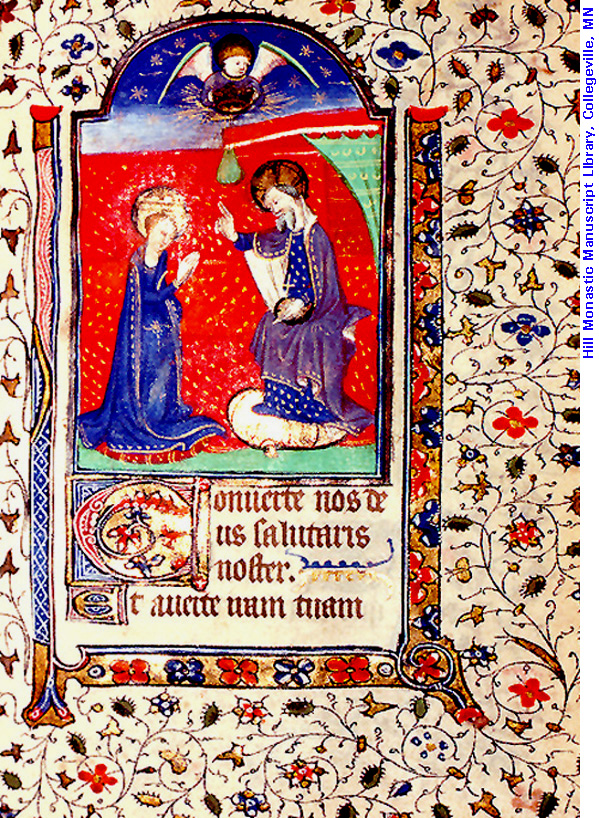 Conuerte nos de
us salutaris
noster.
Et auerte iram tuam
Hill Monastic Manuscript Library, Collegeville, MN